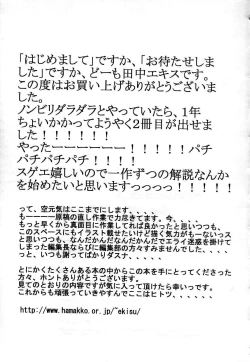 「はじめまして」ですか、「お待たせしま
した」ですか、どーも田中エキスです。
この度はお買い上げありがとうございま
した。
ノンビリダラダラとやっていたら、1年
ちょいかかってようやく2冊目が出せま
した！！！！！！
やったーーーーーー！！！！！パチ
パチパチパチ！！！！
スゲエ嬉しいので一作ずつの解説なんか
を始めたいと思いますっっっ！！！！！
って、空元気はここまでにします、、、
も一ーーー原稿の直し作業で力尽きてます、今、、、
もっと早くから真面目に作業してれば良かったと思いつつも、
このスペースにもイラスト載せたいけど描く気力がもーないっス
と思いつつも、なんだかんだなんだかんだでエライ迷惑を掛けて
しまった編集長ならびに編集部の方々すみませんでした、、、、
っと、いつも謝ってばかりダスナ、、、、、
とにかくたくさんある本の中からこの本を手にとってくださった
方々、ホントありがとうございます。
見てのとおりの内容ですが気に入って頂けたら幸いっす。
これからも頑張っていきやすんでここはヒトツ、、、、、
http://www.hamakko.or.jp/~ekisu/